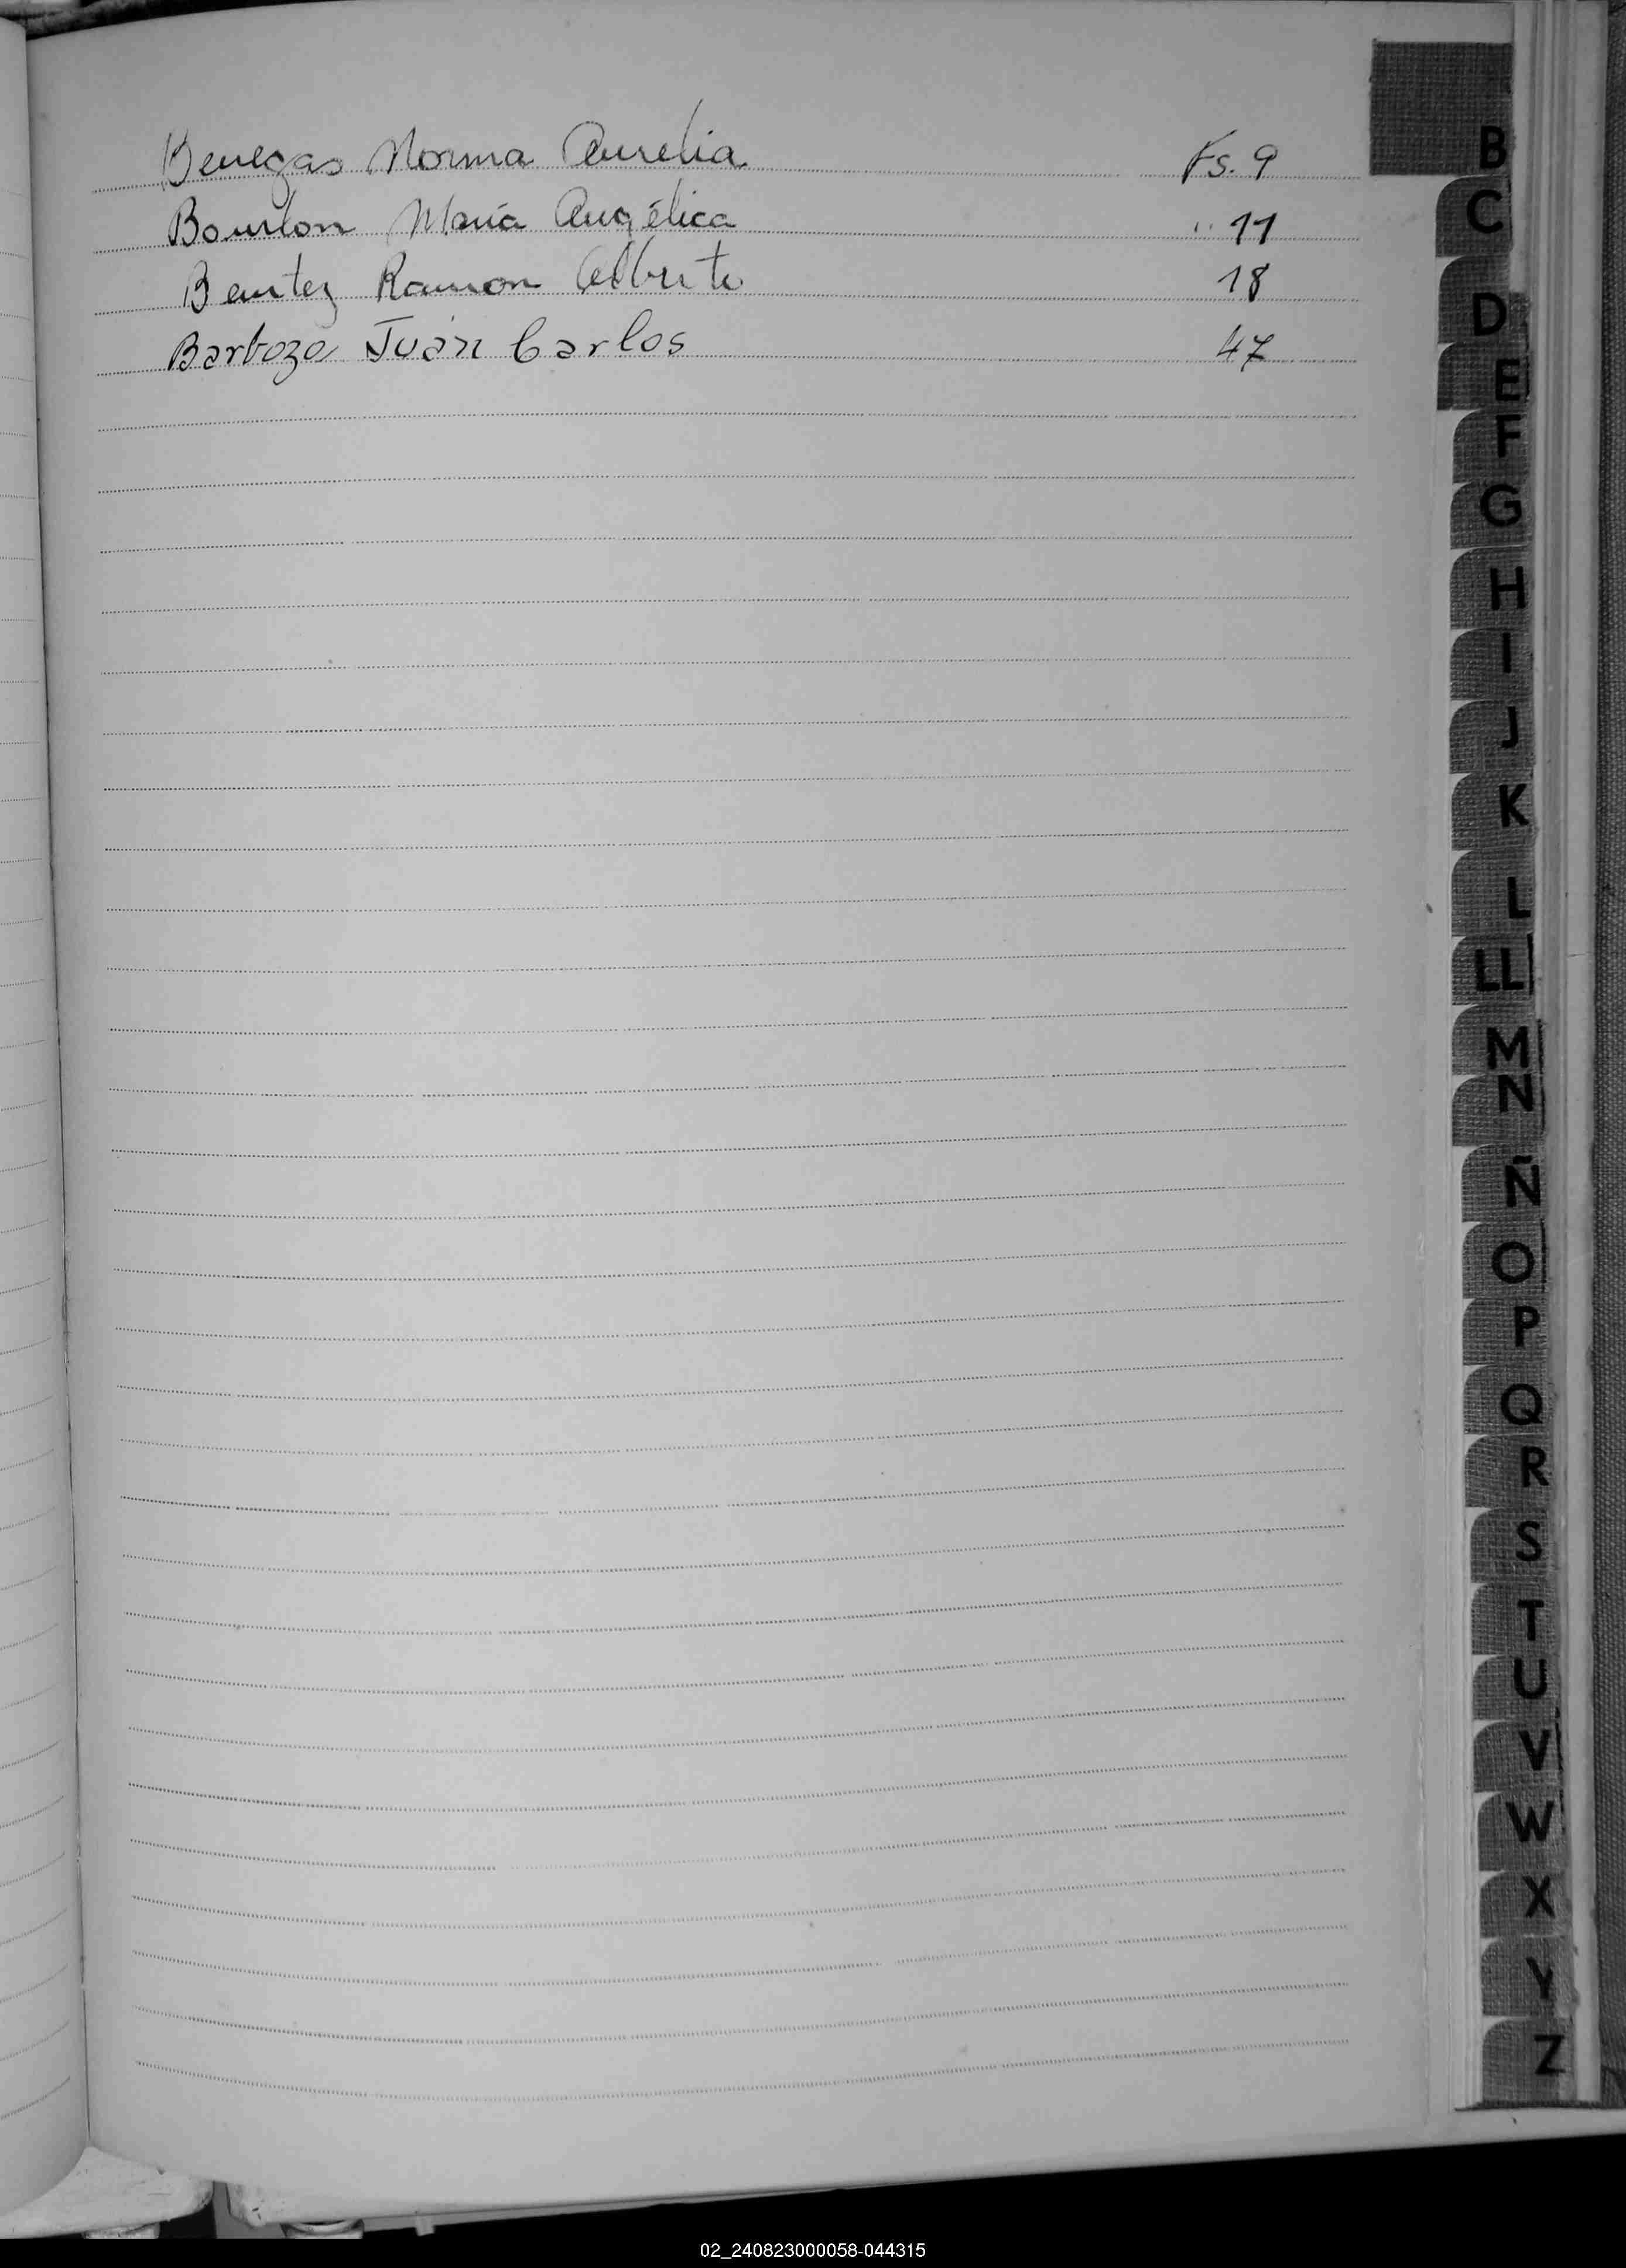 Benegas Norma Aurelia Fs. 9
Bourlon María Angélica " 11
Benitez Ramon Alberto 18
Barboza Juan Carlos 47
B
C
D
E
F
G
H
I
J
K
L
LL
M
N
Ñ
O
P
Q
R
S
T
U
V
W
X
Y
Z
02_240823000058-044315